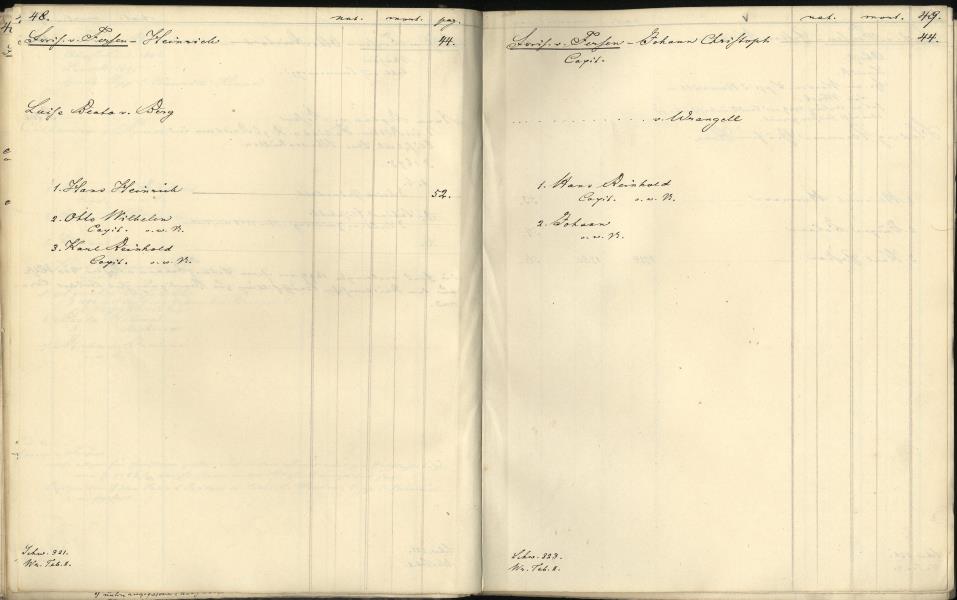 48. nat. mort. pag.
v. Fersen - Heinrich 44.
Luise Beata v. Berg
1. Hans Heinrich 52.
2. Otto Wilhelm
Capit. o.w.N.
3. Karl Reinhold
Capit. o.w.N.
Schw. 321.
Wr. Tab. 2.
nat. mort. 49.
v. Fersen - Johann Christoph 44.
Capit.
. . . . . . . . . . . . . . v. Wrangell
1. Hans Reinhold
Capit. o.w.N.
2. Johann
o.w.N.
Schw. 323.
Wr. Tab. 2.